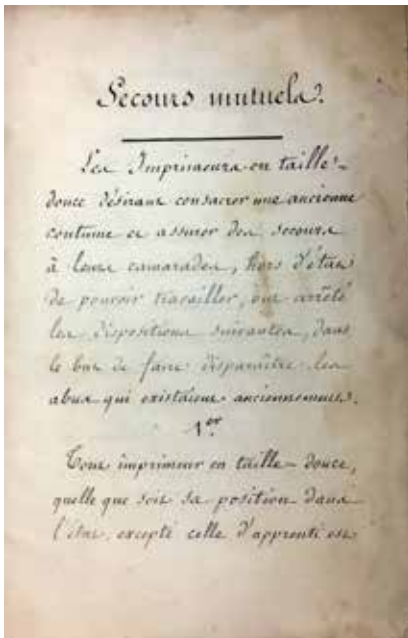 Secours mutuels.
Les Imprimeurs en taille-
douce désirant consacrer une ancienne
coutume et assurer des secours
à leurs camarades, hors d'état
de pouvoir travailler, ont arrêté
les dispositions suivantes, dans
le but de faire disparaître les
abus qui existaient anciennement.
1er.
Tout imprimeur en taille-douce,
quelle que soit sa position dans
l'état, excepté celle d'apprenti est